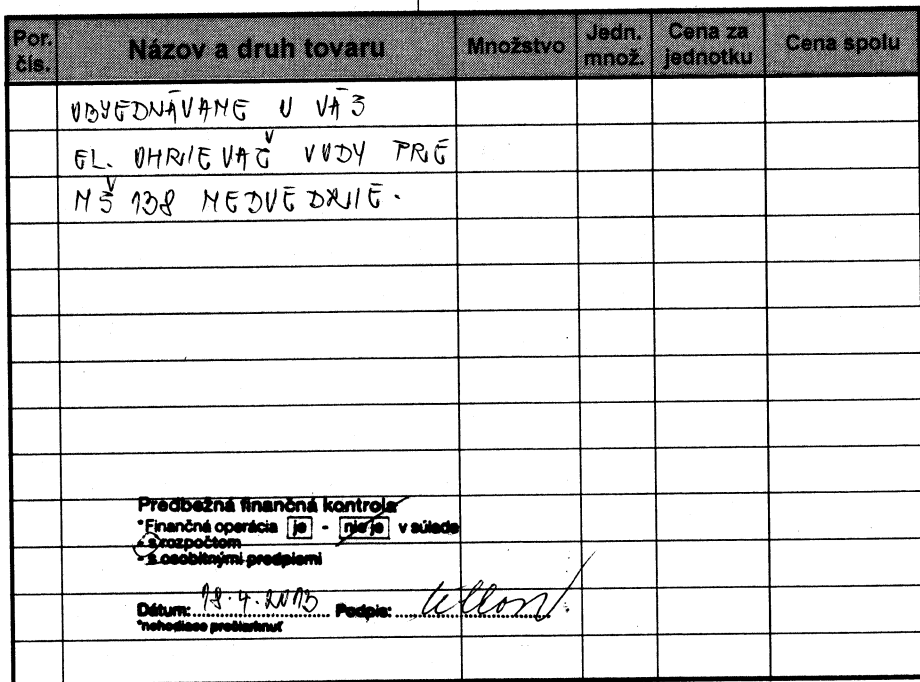 Por. čís. Názov a druh tovaru Množstvo Jedn. množ. Cena za jednotku Cena spolu
OBJEDNÁVAME U VÁS
EL. OHRIEVAČ VODY PRE
MŠ 138 MEDVEDZIE.
Predbežná finančná kontrola
*Finančná operácia je - nie je v súlade
- s rozpočtom
- s osobitnými predpismi
Dátum: 18.4.2013 Podpis:
*nehodiace prečiarknuť